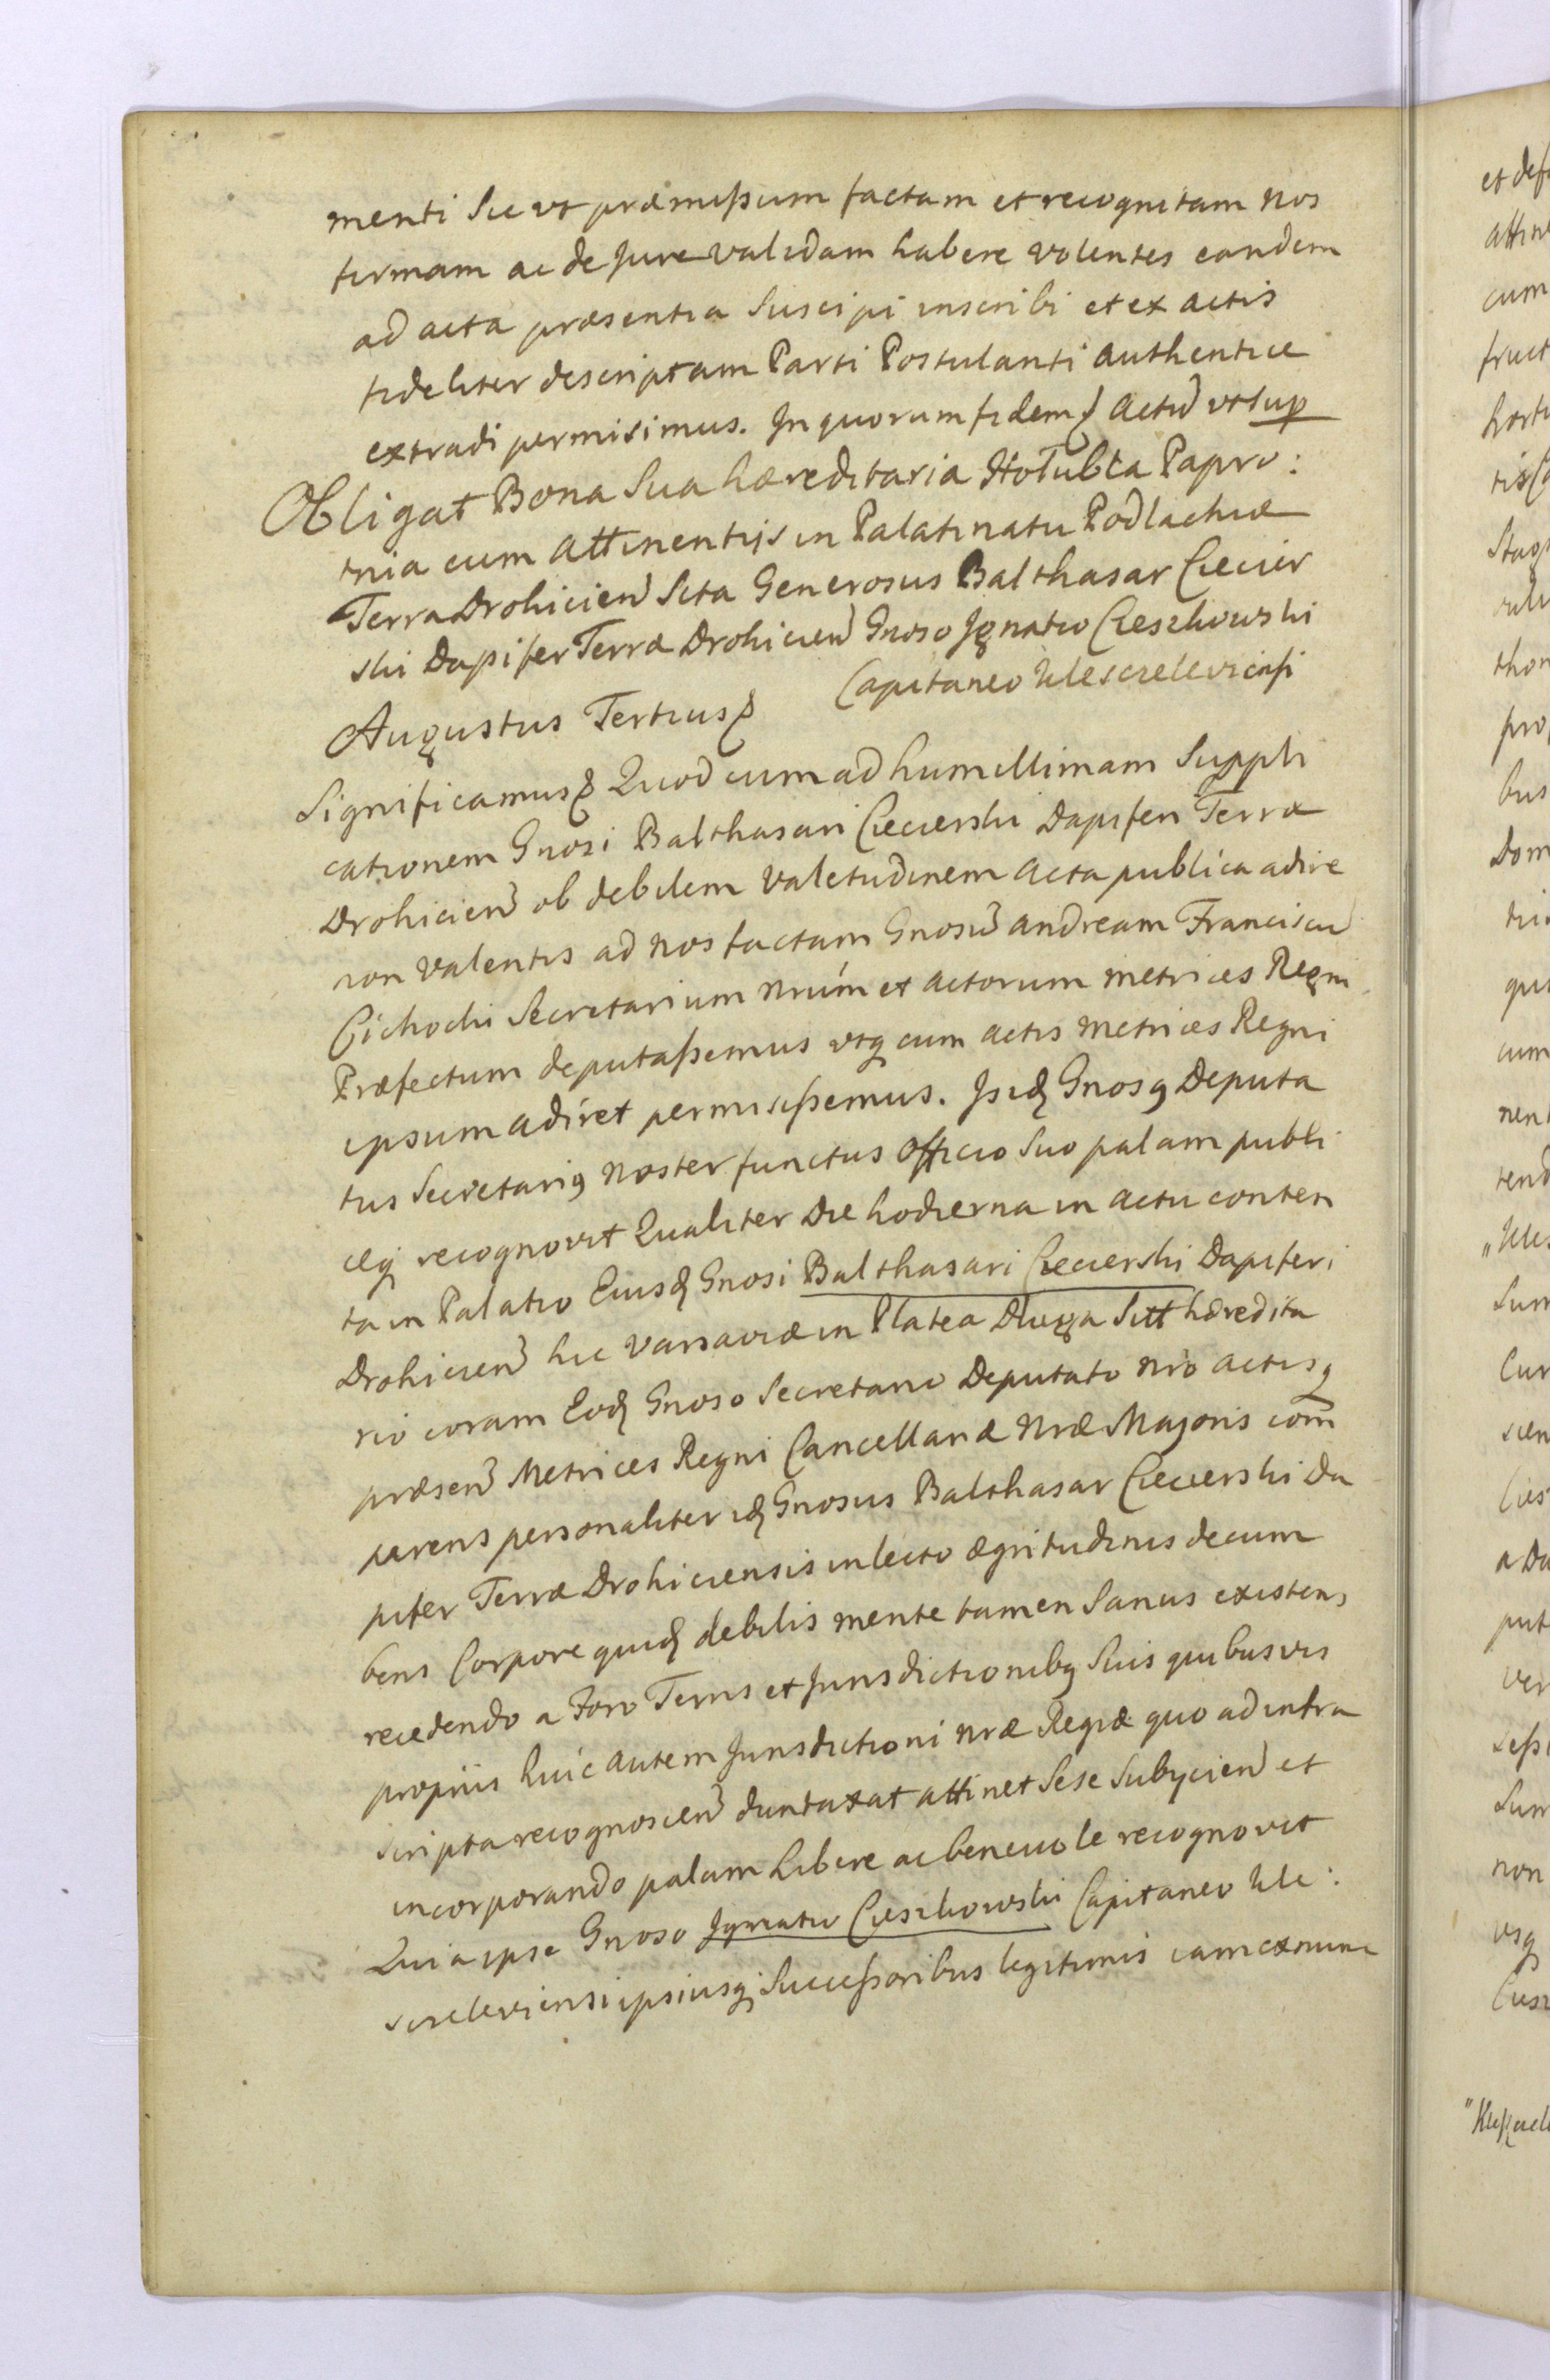 menti Sic vt præmißum factam et recognitam nos
firmam ac de Jure validam habere volentes eandem
ad acta præsentia Suscipi inscribi et ex actis
fideliter descriptam Parti Postulanti Authentice
extradi permisimus. In quorum fidem Actū vt sup
Obligat Bona Sua hæreditaria Hołubla Papro:
tnia cum Attinentijs in Palatinatu Podlachiæ
Terra Drohicień Sita Generosus Balthasar Ciecier
ski Dapifer Terræ Drohicień Gnoso Ignatio Cieszkowski
Capitaneo Kleszczelevicensi
Augustus Tertius
Significamus Quod cum ad humillimam Suppli
cationem Gnosi Balthasari Ciecierski Dapiferi Terræ
Drohicień ob debilem Valetudinem Acta publica adire
non valentis ad nos factam Gnosū Andream Franciscū
Cichocki Secretarium Nrum et Actorum Metrices Regni
Præfectum deputaßemus vtq cum Actis Metrices Regni
ipsum adiret permisißemus. Isq Gnosq Deputa
tus Secretariq Noster functus Officio Suo palam publi
ceq recognovit Qualiter Die hodierna in Actu conten
ta in Palatio Eiusq Gnosi Balthasari Ciecierski Dapiferi
Drohicień hic Varsaviæ in Platea Długa Sitt hæredita
rio coram Eodq Gnoso Secretario Deputato Nro Actisq
præseń Metrices Regni Cancellariæ Nræ Majoris com̄
parens personaliter idq Gnosus Balthasar Ciecierski Da
pifer Terræ Drohiciensis in lecto ægritudinis decum
bens Corpore quidq debilis mente tamen Sanus existens
recedendo a Foro Terris et Jurisdictionibq Suis quibusvis
proprijs huic autem Jurisdictioni Nræ Regiæ quo ad infra
scripta recognoscenđ duntaxat attinet Sese Subijcienđ et
incorporando palam Libere ac benevole recognovit
Quia ipse Gnoso Ignatio Cieszkowski Capitaneo Kle:
szczelevicensi ipsiusq Succeßoribus legitimis iam ex nunc